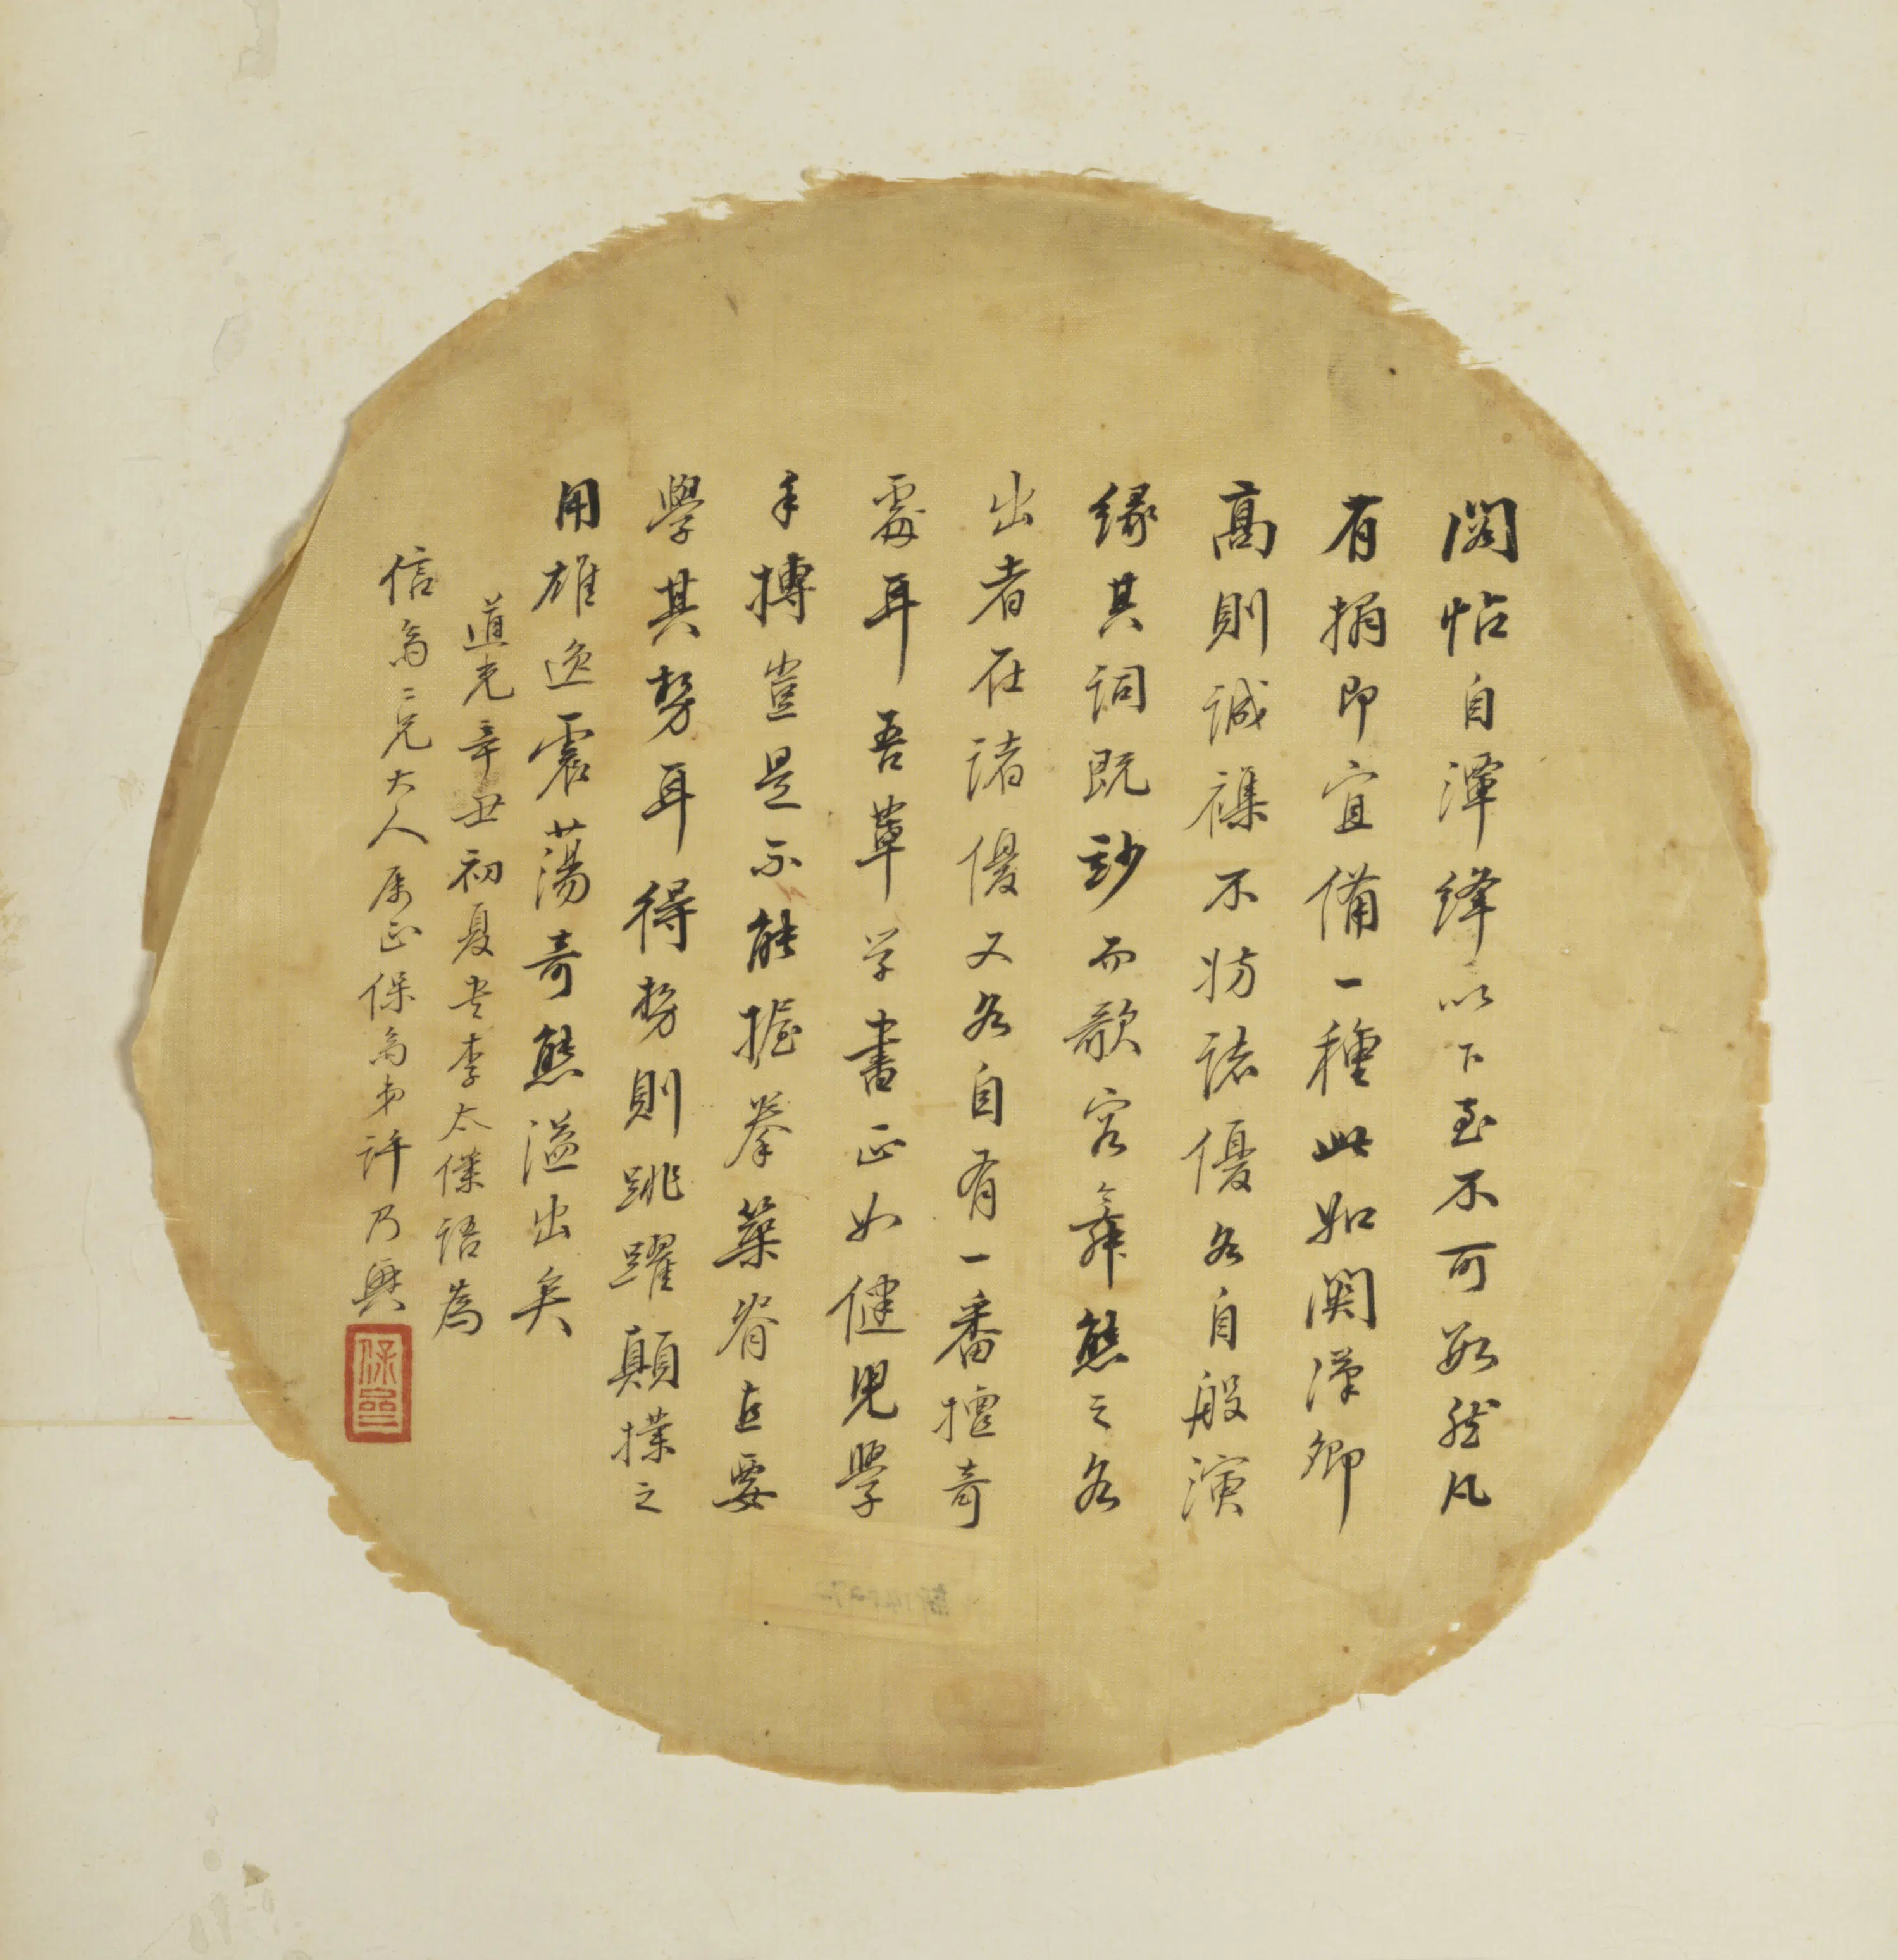 閣帖自潭絳以下至不可數然凡
有搨即宜備一種此如関漢卿
高則誠襍不妨諸優各自般演
緣其詞既玅而歌容舞態之各
出者在諸優又各自有一番擅奇
處耳吾輩学書正如健児學
手搏豈是不能握拳築脊直要
學其勢耳得勢則跳躍顛撲之
用雄逸震蕩奇態溢出矣
道光辛丑初夏書李太僕語為
信翁二兄大人屬正保翁弟許乃興